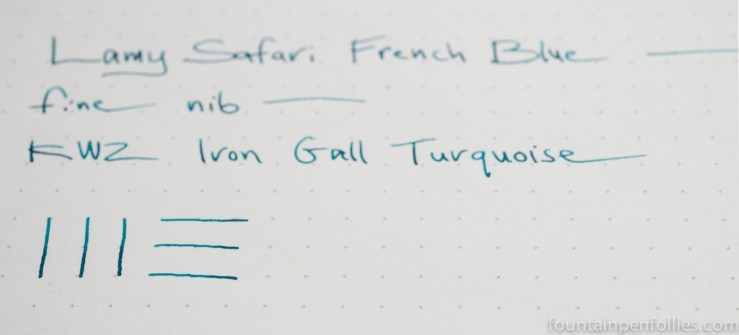 Lamy Safari French Blue
fine nib
KWZ Iron Gall Turquoise
fountainpenfollies.com